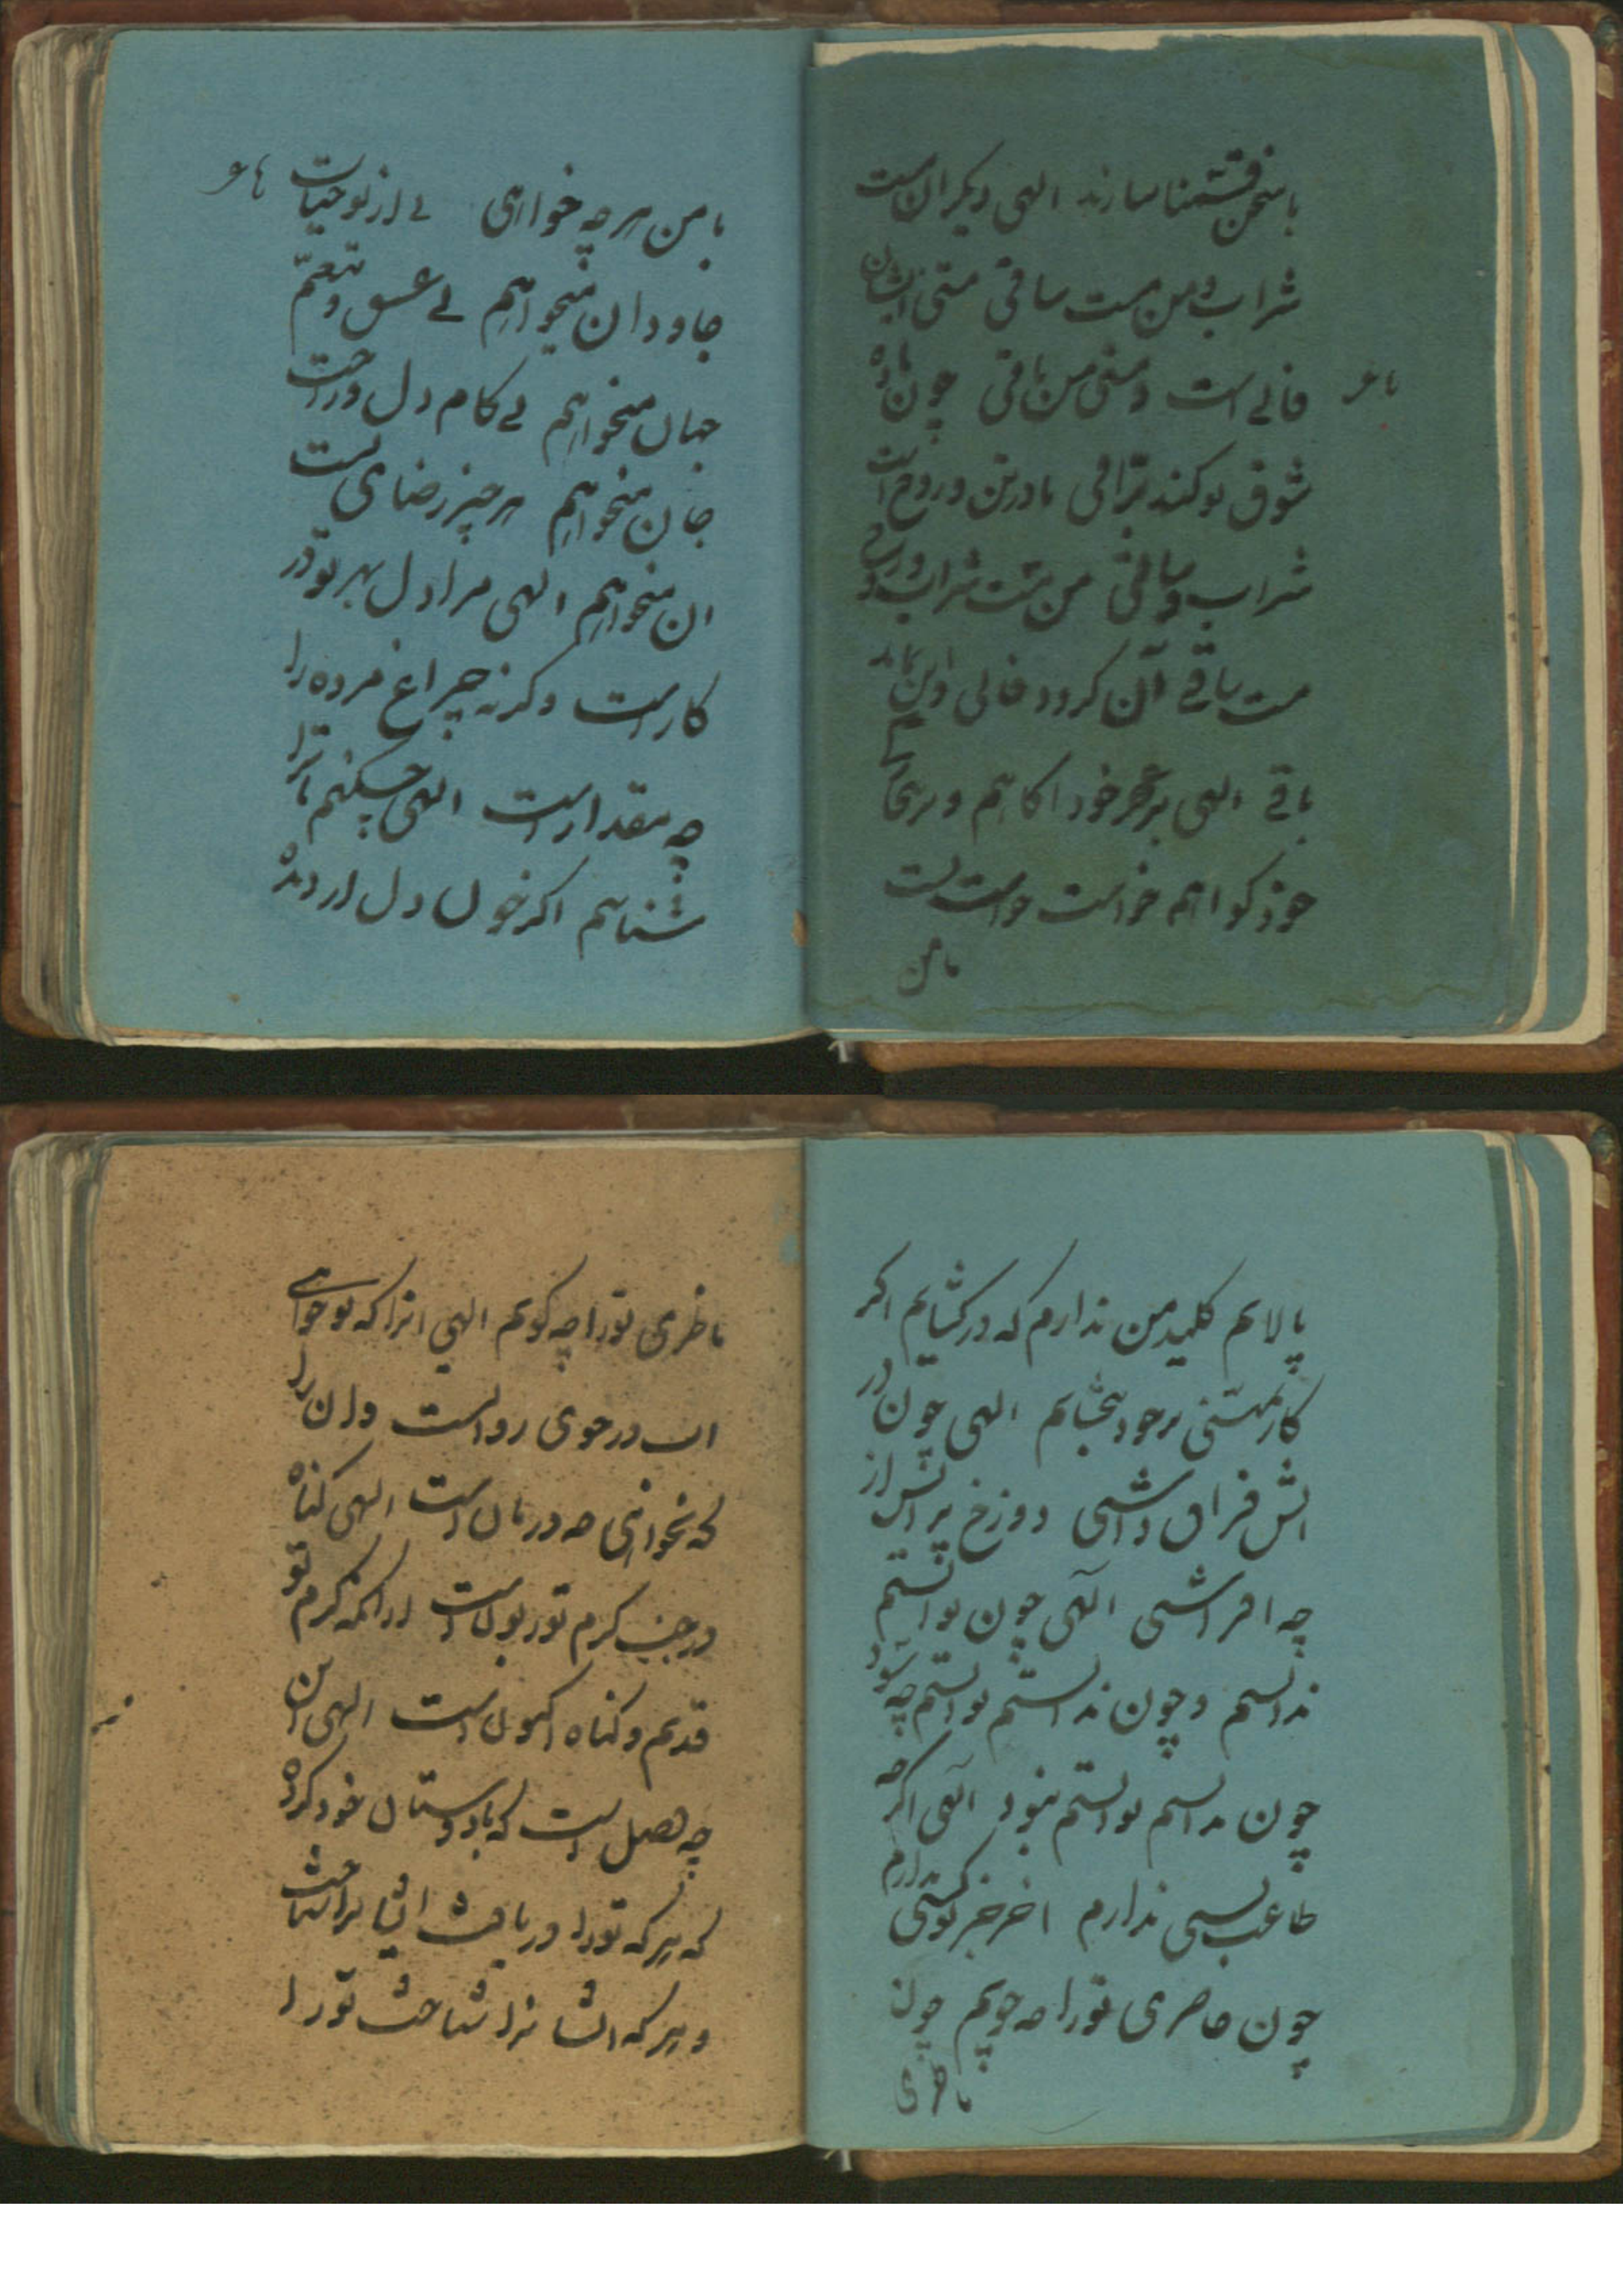 با سخن قسمنا سازند الهی دیکران مست
شراب و من مست ساقی مستی ایشان
فانی است و مستی من باقی چون باده
شوق تو کند براقی ما در تن و روح است
شراب و ساقی من مست شراب و
مست ساقی آن کردد فانی و این ماند
باقی الهی بر عجز خود اکاهم و بر بیچارکی
خود کواهم خواست خواست تست
بامن
با عی
بامن هرچه خواهی نی از تو حیات
با عی
جاودان میخواهم نی عیش و تنعم
جهان میخواهم نی کام دل و راحت
جان میخواهم هر چیز رضای تست
ان میخواهم الهی مرا دل بهر تو در
کار است وکرنه چراغ مرده را
چه مقدار است الهی چکنم تا ترا
شناسم اکر خون دل از دیده
پالایم کلید من ندارم که در کشایم اکر
کار نیستی بر خود بخشایم الهی چون در
اتش فراق داشتی دوزخ پر اتش از
چه افراشتی الهی چون توانستم
ندانستم و چون ندانستم توانستم چه سود
چون ندانستم توانستم نبود الهی اکرچه
طاعت بسی ندارم اخر جز تو کسی ندارم
چون حاضری تو را چه جویم چون
ناظری
ناظری تو را چه کویم الهی انرا که تو خواهی
اب در جوی روانست وان را
که نخواهی چه درمان است الهی کناه
در جنب کرم تو زبون است زیرا که کرم تو
قدیم و کناه اکنون است الهی این
چه فضل است که با دوستان خود کرده
که هر که تو را دریافت ایشانرا شناخت
و هر که ایشانرا شناخت تو را